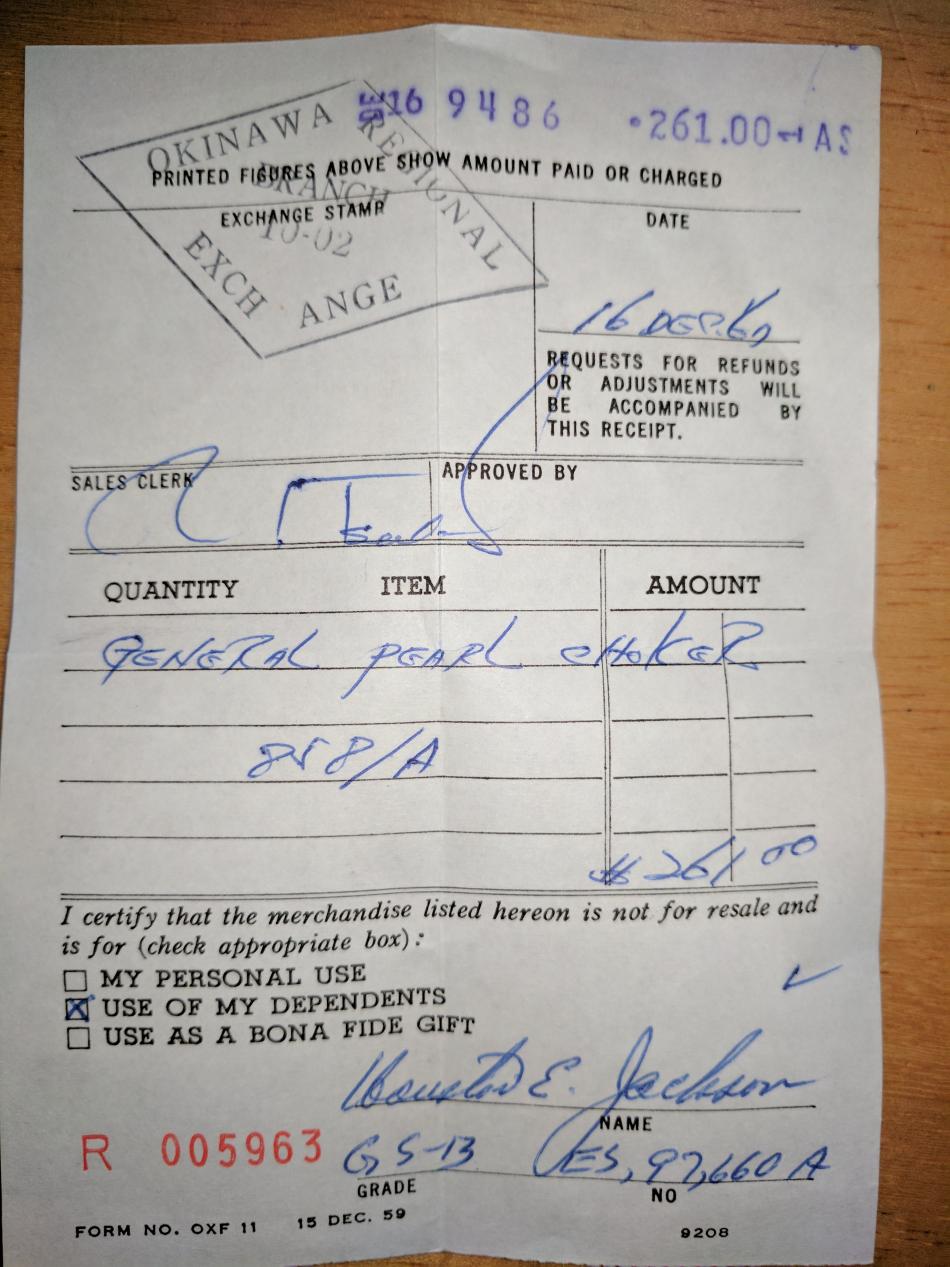 DE16 9486 •261.00 AS
PRINTED FIGURES ABOVE SHOW AMOUNT PAID OR CHARGED
OKINAWA REGIONAL
BRANCH
10-02
EXCHANGE
EXCHANGE STAMP
DATE
16 DEC.
REQUESTS FOR REFUNDS
OR ADJUSTMENTS WILL
BE ACCOMPANIED BY
THIS RECEIPT.
SALES CLERK
APPROVED BY
QUANTITY ITEM AMOUNT
GENERAL PEARL CHOKER
858/A
$261 00
I certify that the merchandise listed hereon is not for resale and
is for (check appropriate box):
MY PERSONAL USE
USE OF MY DEPENDENTS
USE AS A BONA FIDE GIFT
Houston E. Jackson
NAME
R 005963
GS-13 ES, 97,660 A
GRADE NO
FORM NO. OXF 11 15 DEC. 59 9208